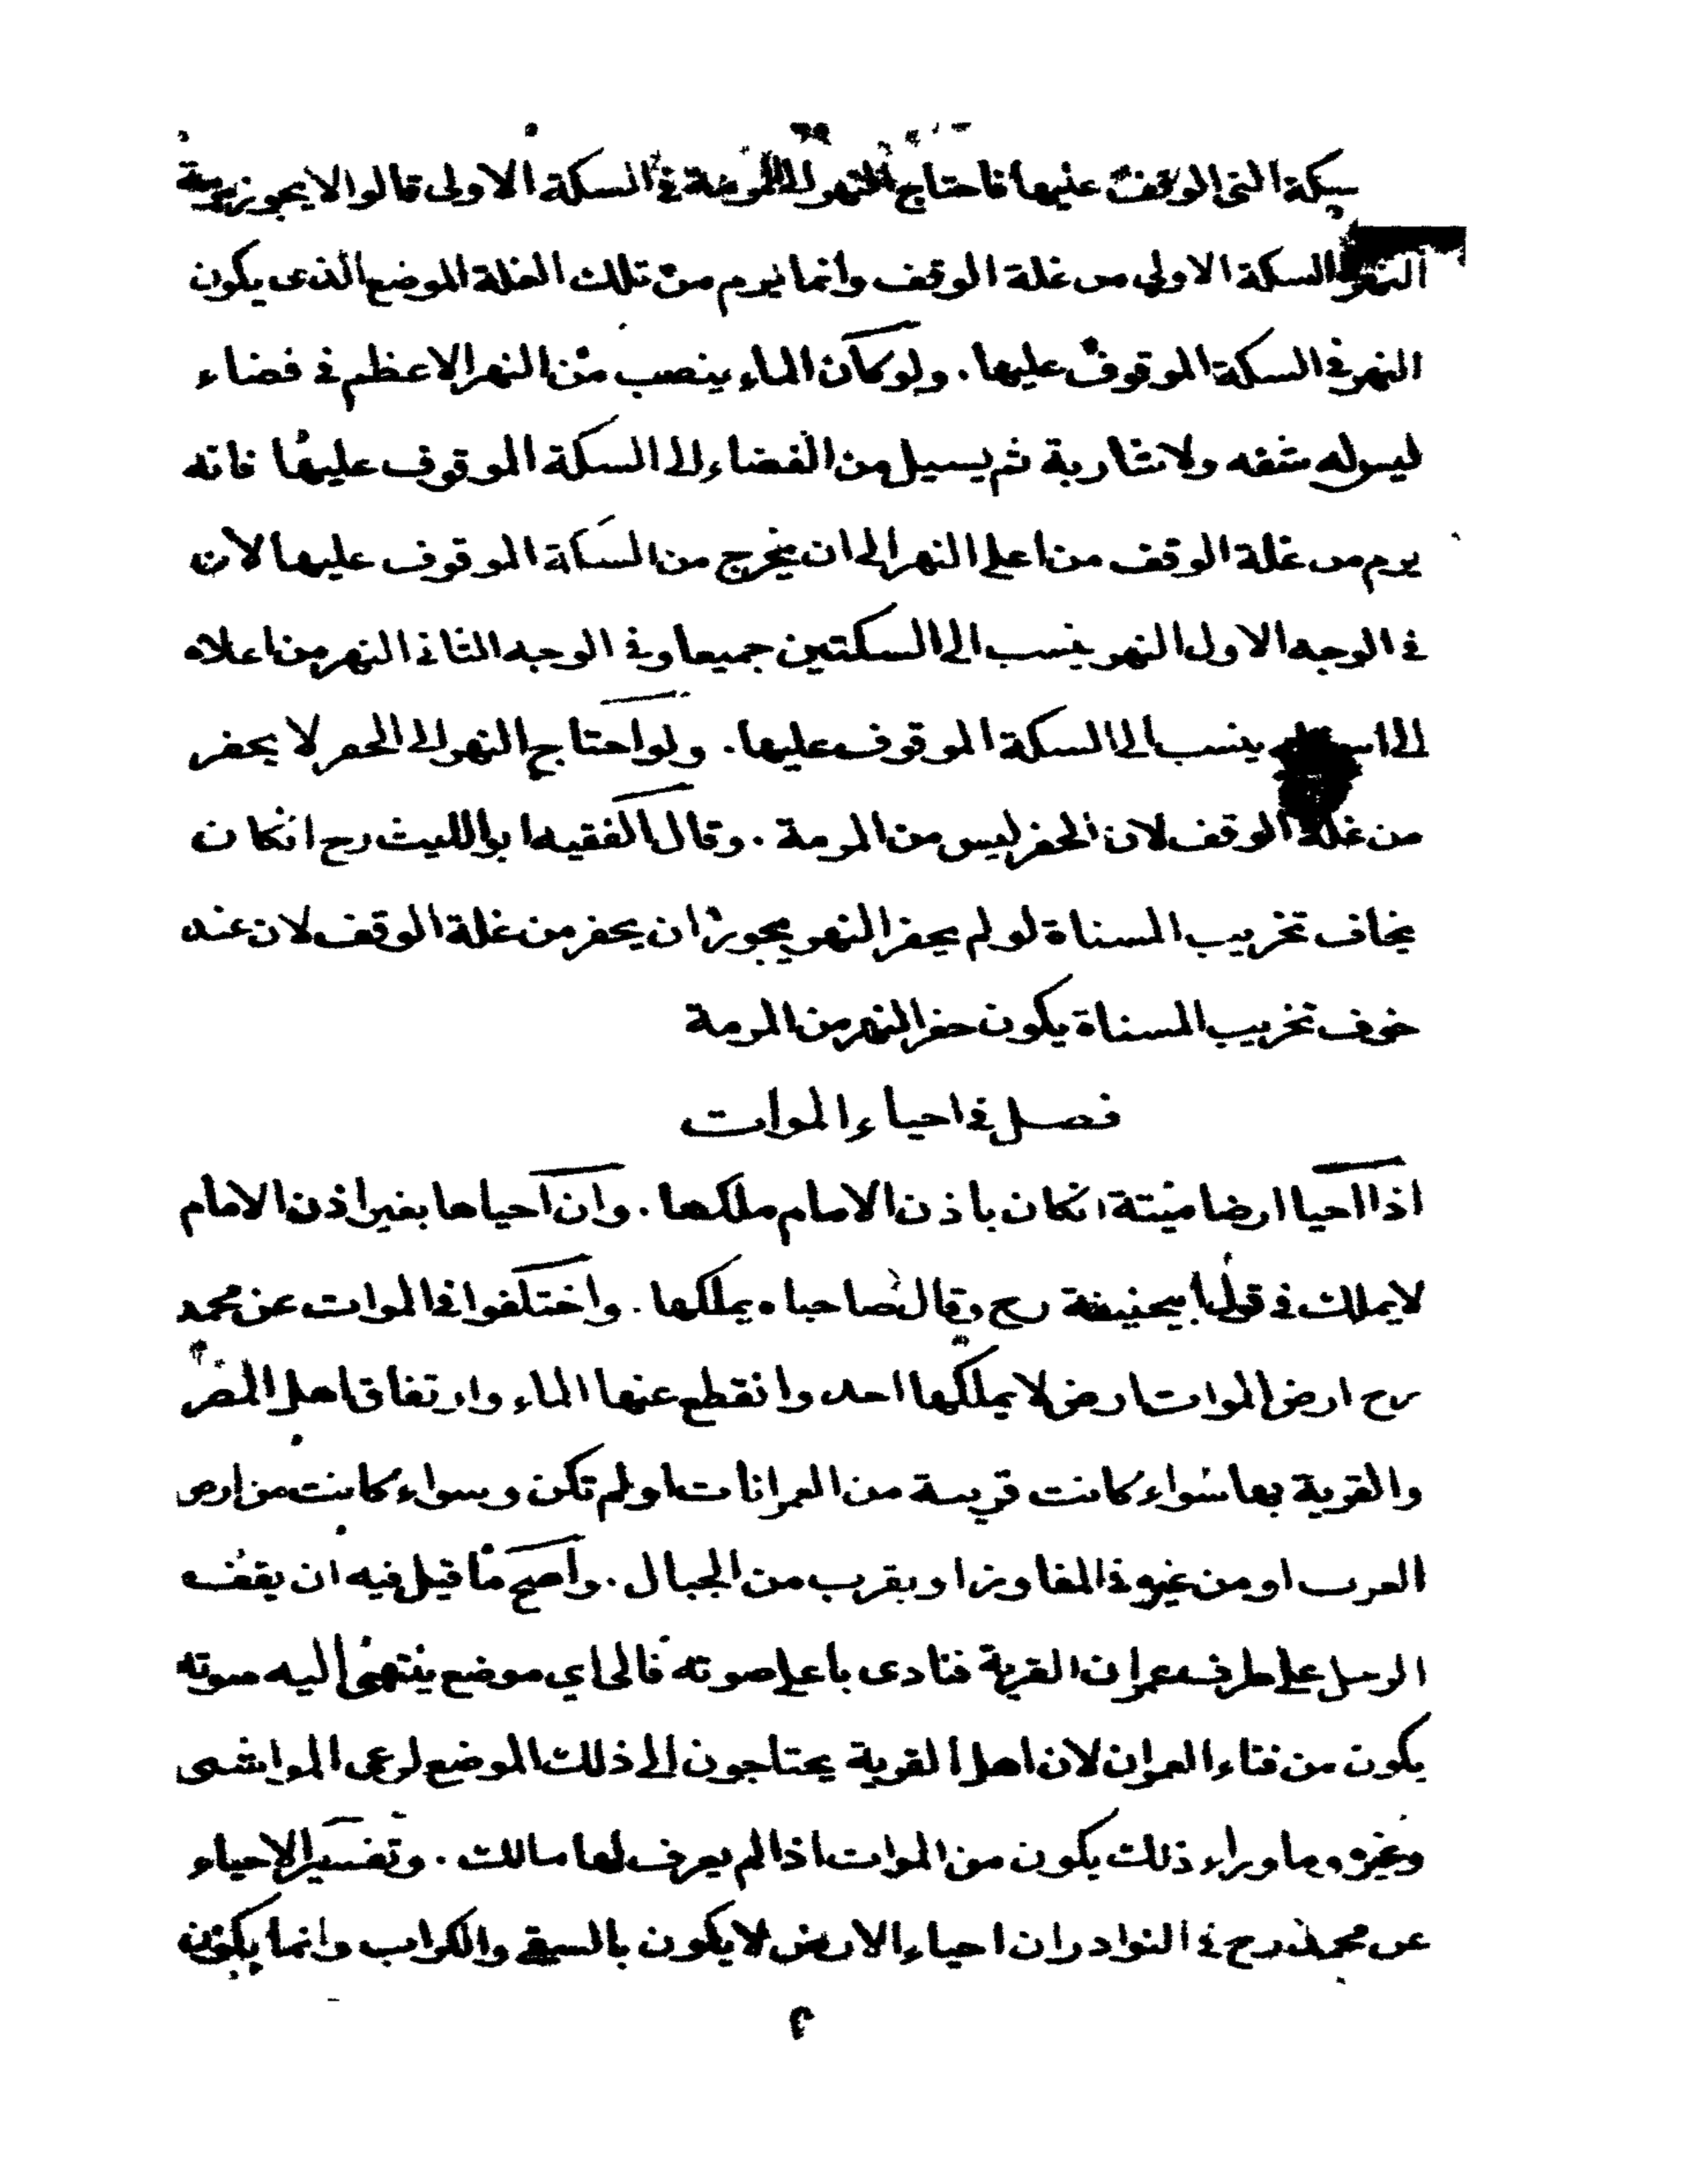 سكة التى الوقف عليها فاحتاج النهر الى المرمة في السكة الاولى قالوا لا يجوز مرمة
النهر السكة الاولى من غلة الوقف وانما يرم من تلك الغلة الموضع الذى يكون
النهر في السكة الموقوف عليها . ولو كان الماء ينصب من النهر الاعظم في فضاء
ليس له شفه ولا شاربة ثم يسيل من الفضاء الى السكة الموقوف عليها فانه
يرم من غلة الوقف من اعلى النهر الى ان يخرج من السكة الموقوف عليها لان
في الوجه الاول النهر ينسب الى السكتين جميعا وفي الوجه الثاني النهر من اعلاه
الى اسفله ينسب الى السكة الموقوف عليها . ولو احتاج النهر الى الحفر لا يحفر
من غلة الوقف لان الحفر ليس من المرمة . وقال الفقيه ابو الليث رح انكان
يخاف تخريب المسناة لو لم يحفر النهر يجوز ان يحفر من غلة الوقف لان عند
خوف تخريب المسناة يكون حفر النهر من المرمة
فصل في احياء الموات
اذا احيا ارضا ميتة انكان باذن الامام ملكها . وان احياها بغير اذن الامام
لا يملك في قول ابيحنيفة رح وقال صاحباه يملكها . واختلفوا في الموات عن محمد
رح ارض الموات ارض لا يملكها احد وانقطع عنها الماء وارتفاق اهل المصر
والقرية بها سواء كانت قريبة من العمرانات او لم تكن وسواء كانت من ارض
العرب او من غيره في المفاوز او بقرب من الجبال . واصح ما قيل فيه ان يقف
الرجل على طرف عمران القرية فنادى باعلى صوته فالى اي موضع ينتهى اليه صوته
يكون من فناء العمران لان اهل القرية يحتاجون الى ذلك الموضع لرعى المواشى
وغيره وما وراء ذلك يكون من الموات اذا لم يعرف لها مالك . وتفسير الاحياء
عن محمد رح في النوادر ان احياء الارض لا يكون بالسقي والكراب وانما يكون